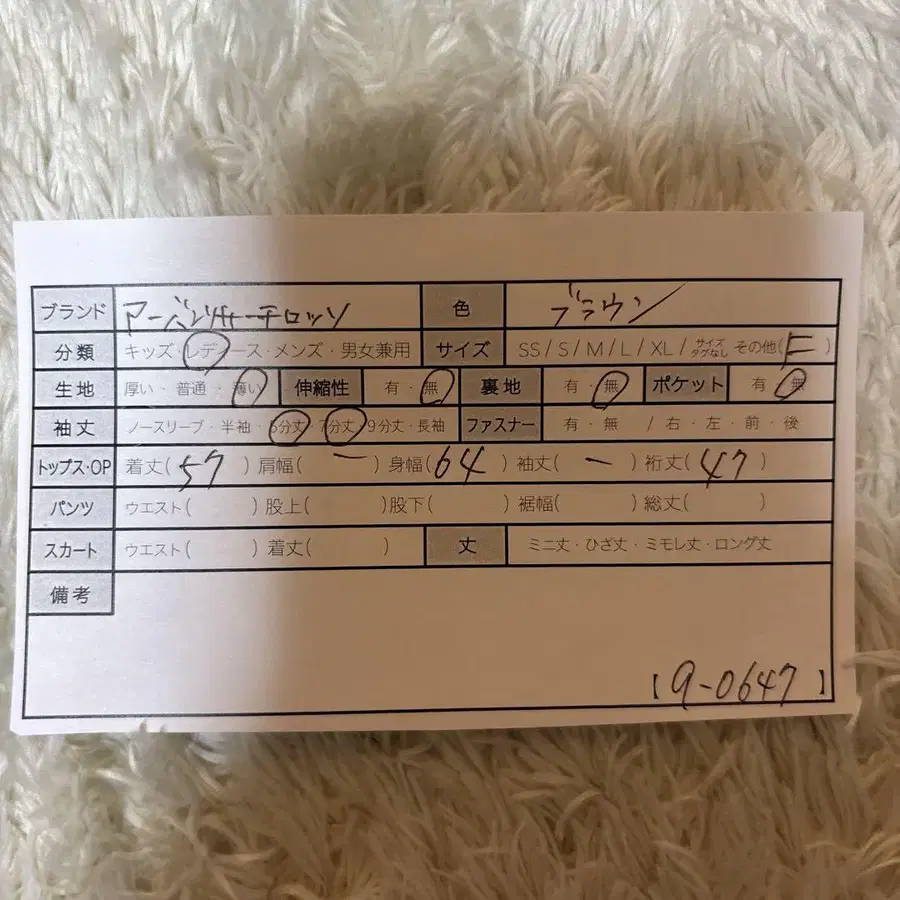 ブランド アーバンリサーチロッソ 色 ブラウン
分類 キッズ・レディース・メンズ・男女兼用 サイズ SS / S / M / L / XL / サイズタグなし その他( F )
生地 厚い・普通・薄い 伸縮性 有・無 裏地 有・無 ポケット 有・無
袖丈 ノースリーブ・半袖・5分丈・7分丈・9分丈・長袖 ファスナー 有・無 / 右・左・前・後
トップス・OP 着丈( 57 ) 肩幅( ー ) 身幅( 64 ) 袖丈( ー ) 裄丈( 47 )
パンツ ウエスト( ) 股上( ) 股下( ) 裾幅( ) 総丈( )
スカート ウエスト( ) 着丈( ) 丈 ミニ丈・ひざ丈・ミモレ丈・ロング丈
備考
【 9-0647 】